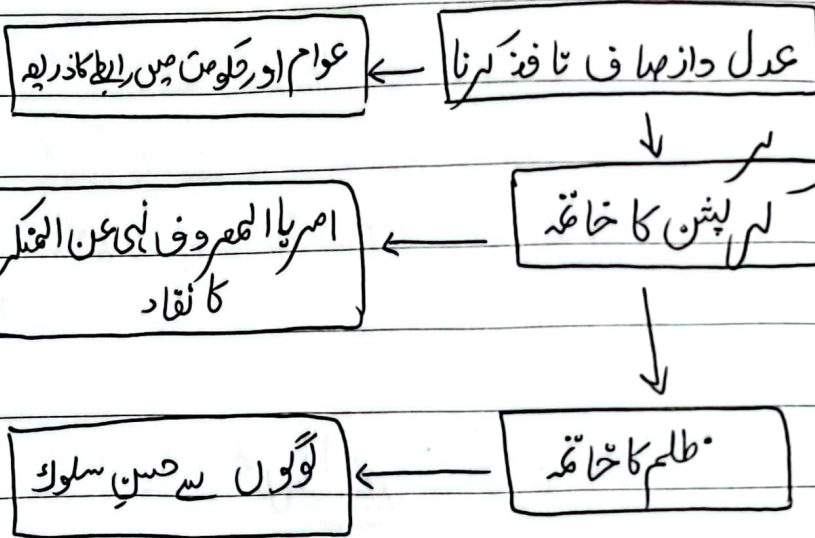 عدل وانصاف نافذ کرنا
عوام اور حکومت میں رابطے کا ذریعہ
کرپشن کا خاتمہ
امر باالمعروف نہی عن المنکر
کا نفاد
ظلم کا خاتمہ
لوگوں سے حسنِ سلوک